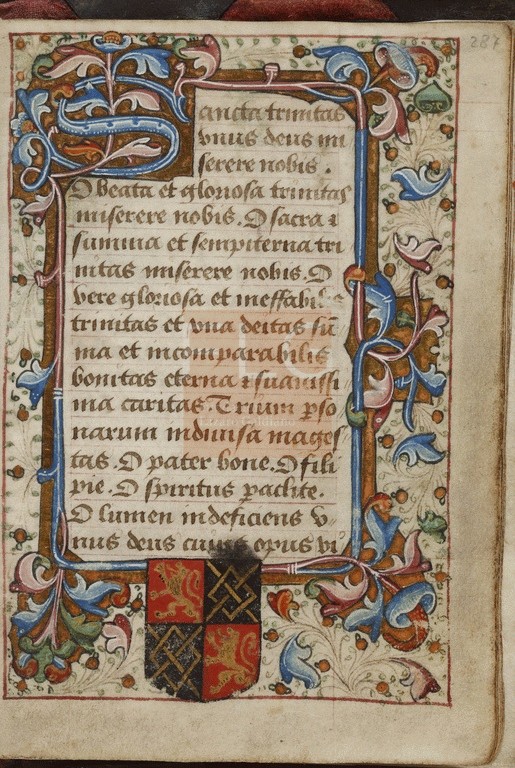 287
Sancta trinitas
vnus deus mi
serere nobis.
O beata et gloriosa trinitas
miserere nobis. O sacra ⁊
summa et sempiterna tri
nitas miserere nobis. O
vere gloriosa et ineffabilis
trinitas et vna deitas sū
ma et incomparabilis
bonitas eterna ⁊ suauissi
ma caritas. Trium ꝑso
narum indiuisa mages
tas. O pater bone. O fili
pie. O spiritus ꝑaclite.
O lumen indeficiens v
nus deus cuius opus vi